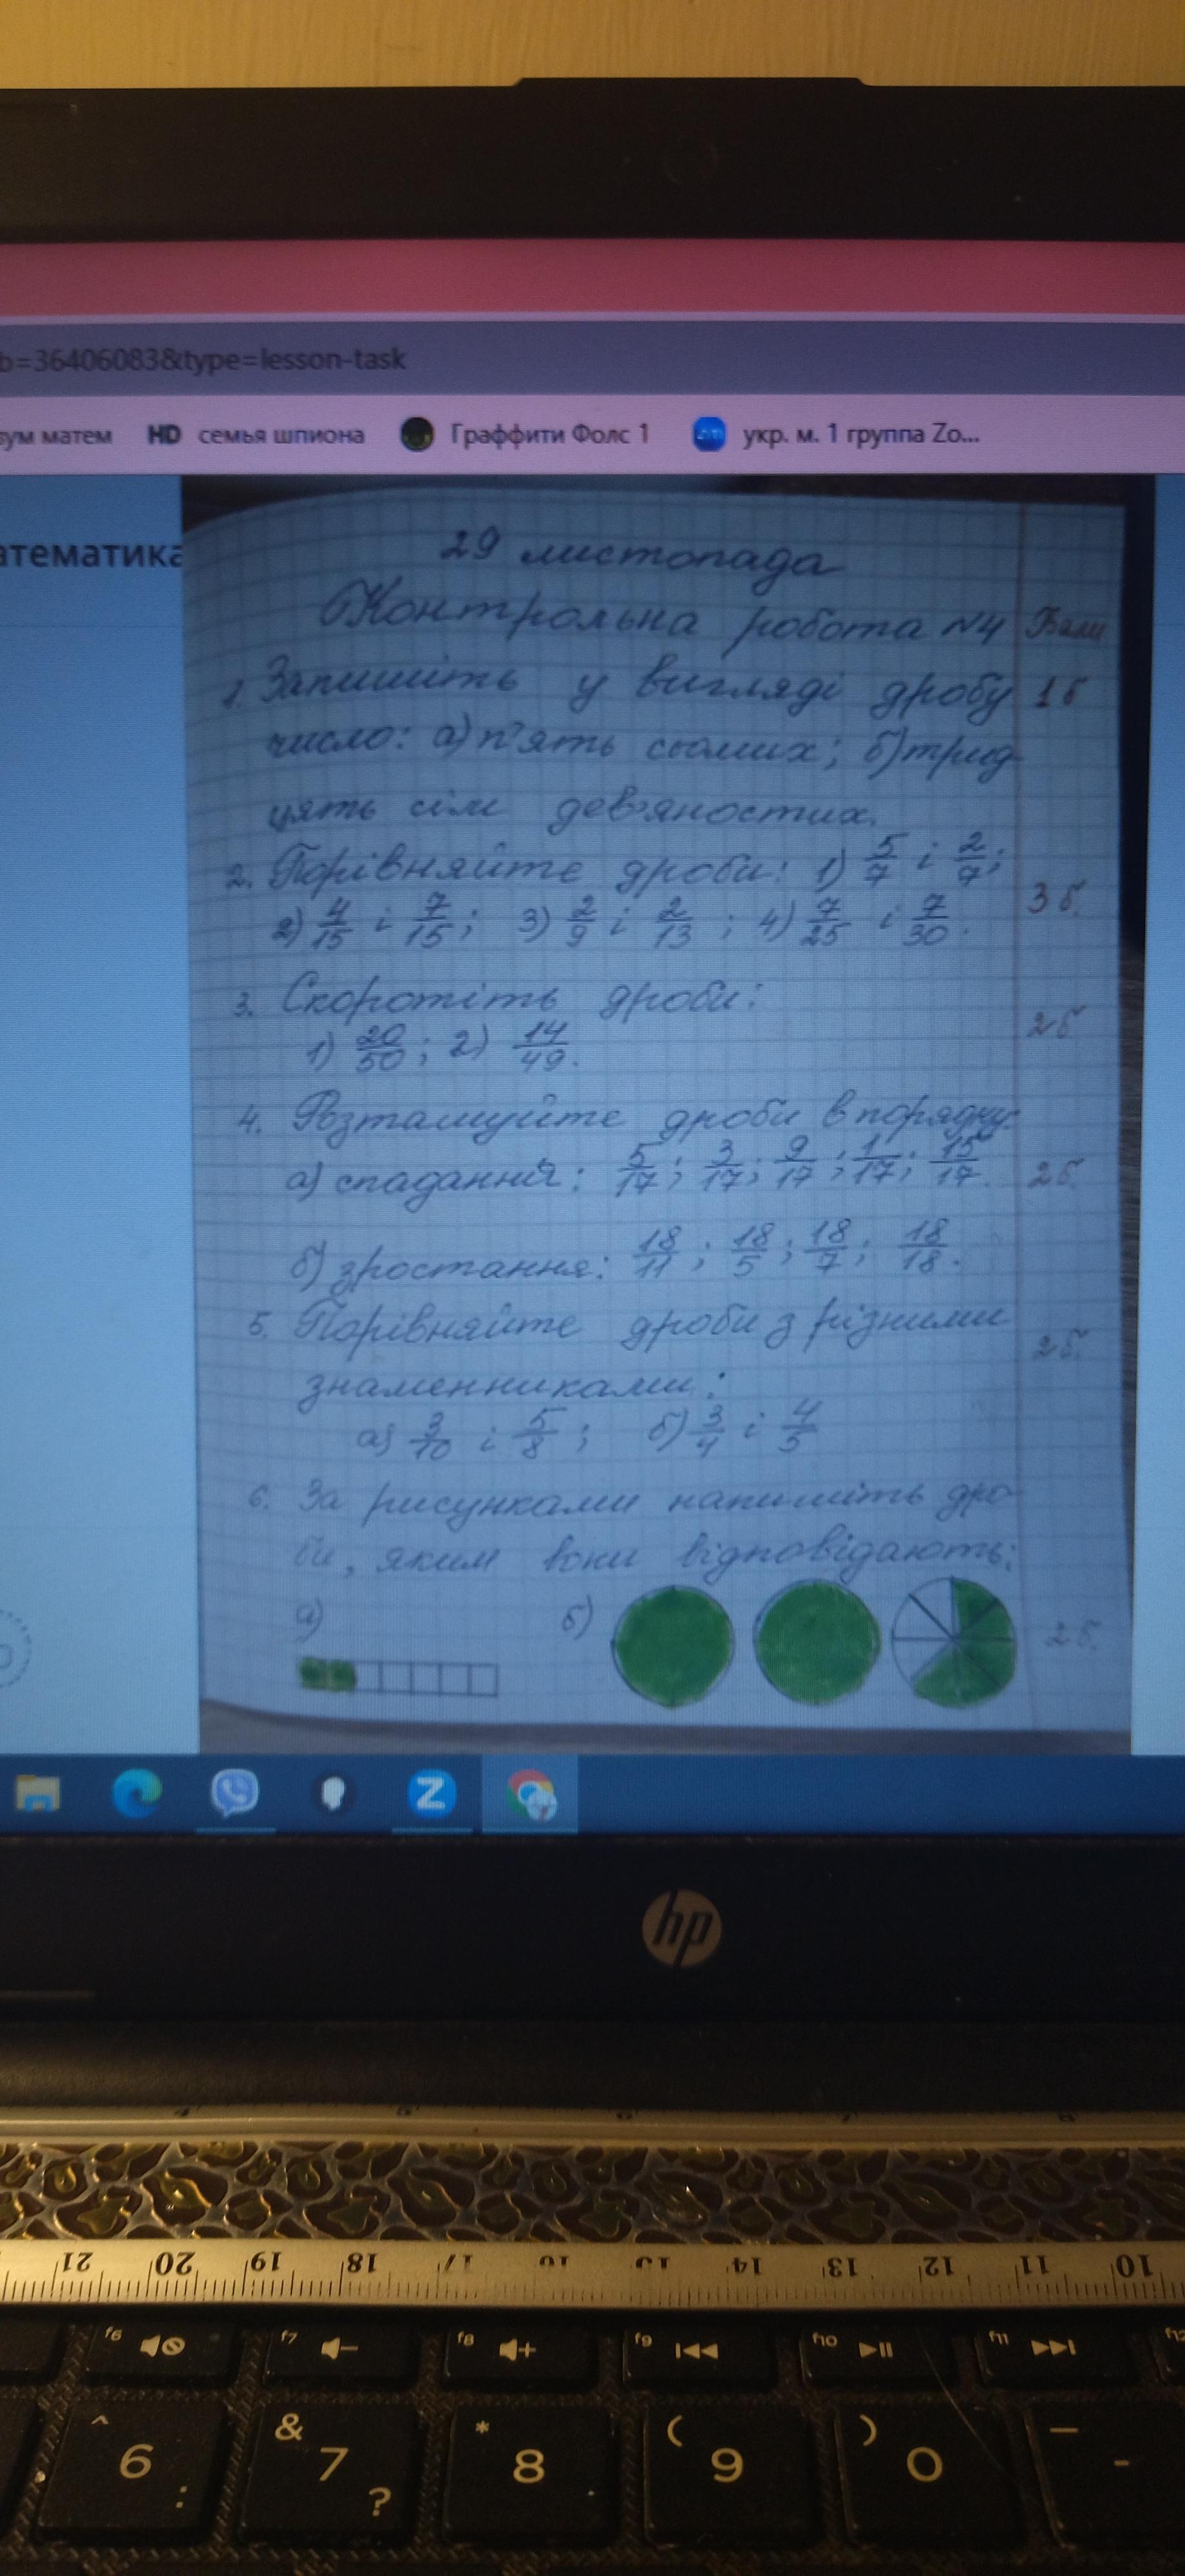 b=36406083&type=lesson-task
зум матем HD семья шпиона Граффити Фолс 1 укр. м. 1 группа Zo...
атематика
29 листопада
Контрольна робота №4 Бали
1. Запишіть у вигляді дробу 1б
число: а) п'ять сьомих; б) трид-
цять сім дев'яностих.
2. Порівняйте дроби: 1) 5/7 і 2/7;
2) 4/15 і 7/15; 3) 2/9 і 2/13; 4) 7/25 і 7/30. 3б.
3. Скоротіть дроби:
1) 20/50; 2) 14/49. 2б
4. Розташуйте дроби в порядку
а) спадання: 5/17; 3/17; 9/17; 1/17; 15/17. 2б.
б) зростання: 18/11; 18/5; 18/7; 18/18.
5. Порівняйте дроби з різними
знаменниками: 2б.
а) 3/10 і 5/8; б) 3/4 і 4/5
6. За рисунками напишіть дро-
би, яким вони відповідають:
а) б) 2б.
hp
21 20 19 18 17 16 15 14 13 12 11 10
f6 f7 f8 f9 f10 f11 f12
^ & * ( ) —
6 7 8 9 0 -
: ? .